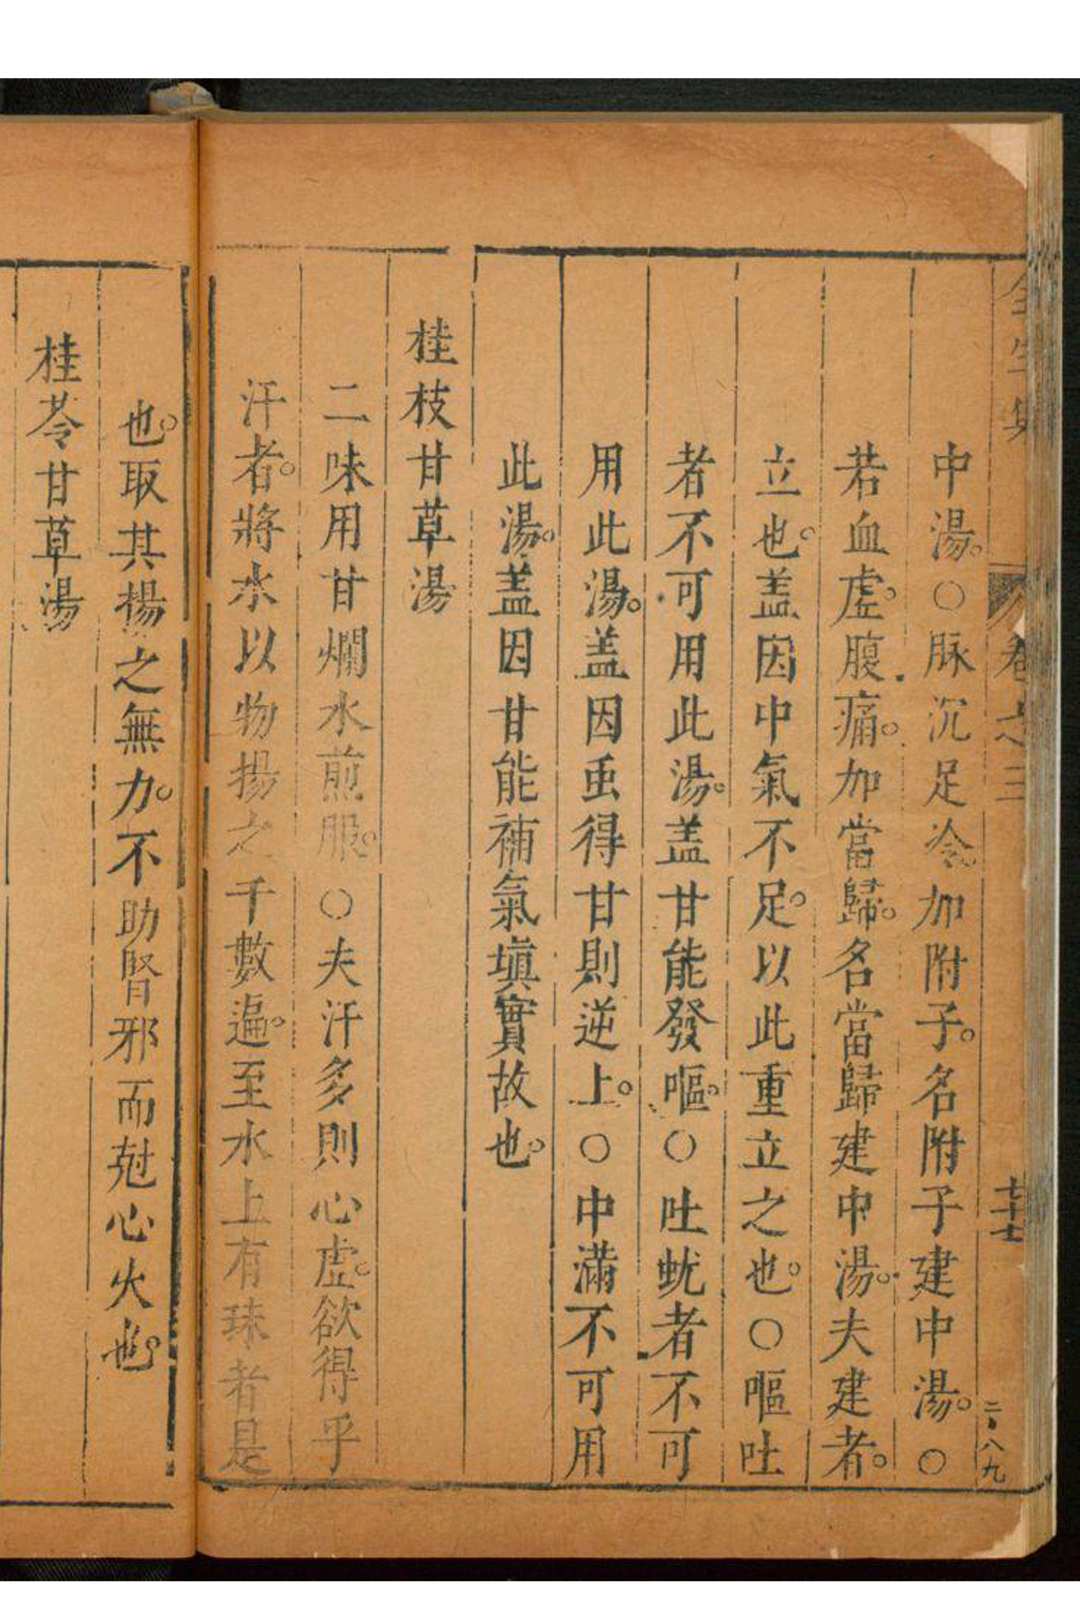 中湯。○脉沉足冷。加附子。名附子建中湯。○
若血虛。腹痛。加當歸。名當歸建中湯。夫建者。
立也。盖因中氣不足。以此重立之也。○嘔吐
者不可用此湯。盖甘能發嘔。○吐蚘者不可
用此湯。盖因虫得甘則逆上。○中滿不可用
此湯。盖因甘能補氣塡實故也。
桂枝甘草湯
二味用甘爛水煎服。○夫汗多則心虛。欲得乎
汗者。將水以物揚之千數遍。至水上有珠者是
也。取其揚之無力。不助腎邪而尅心火也。
桂苓甘草湯
卷之三
二八九